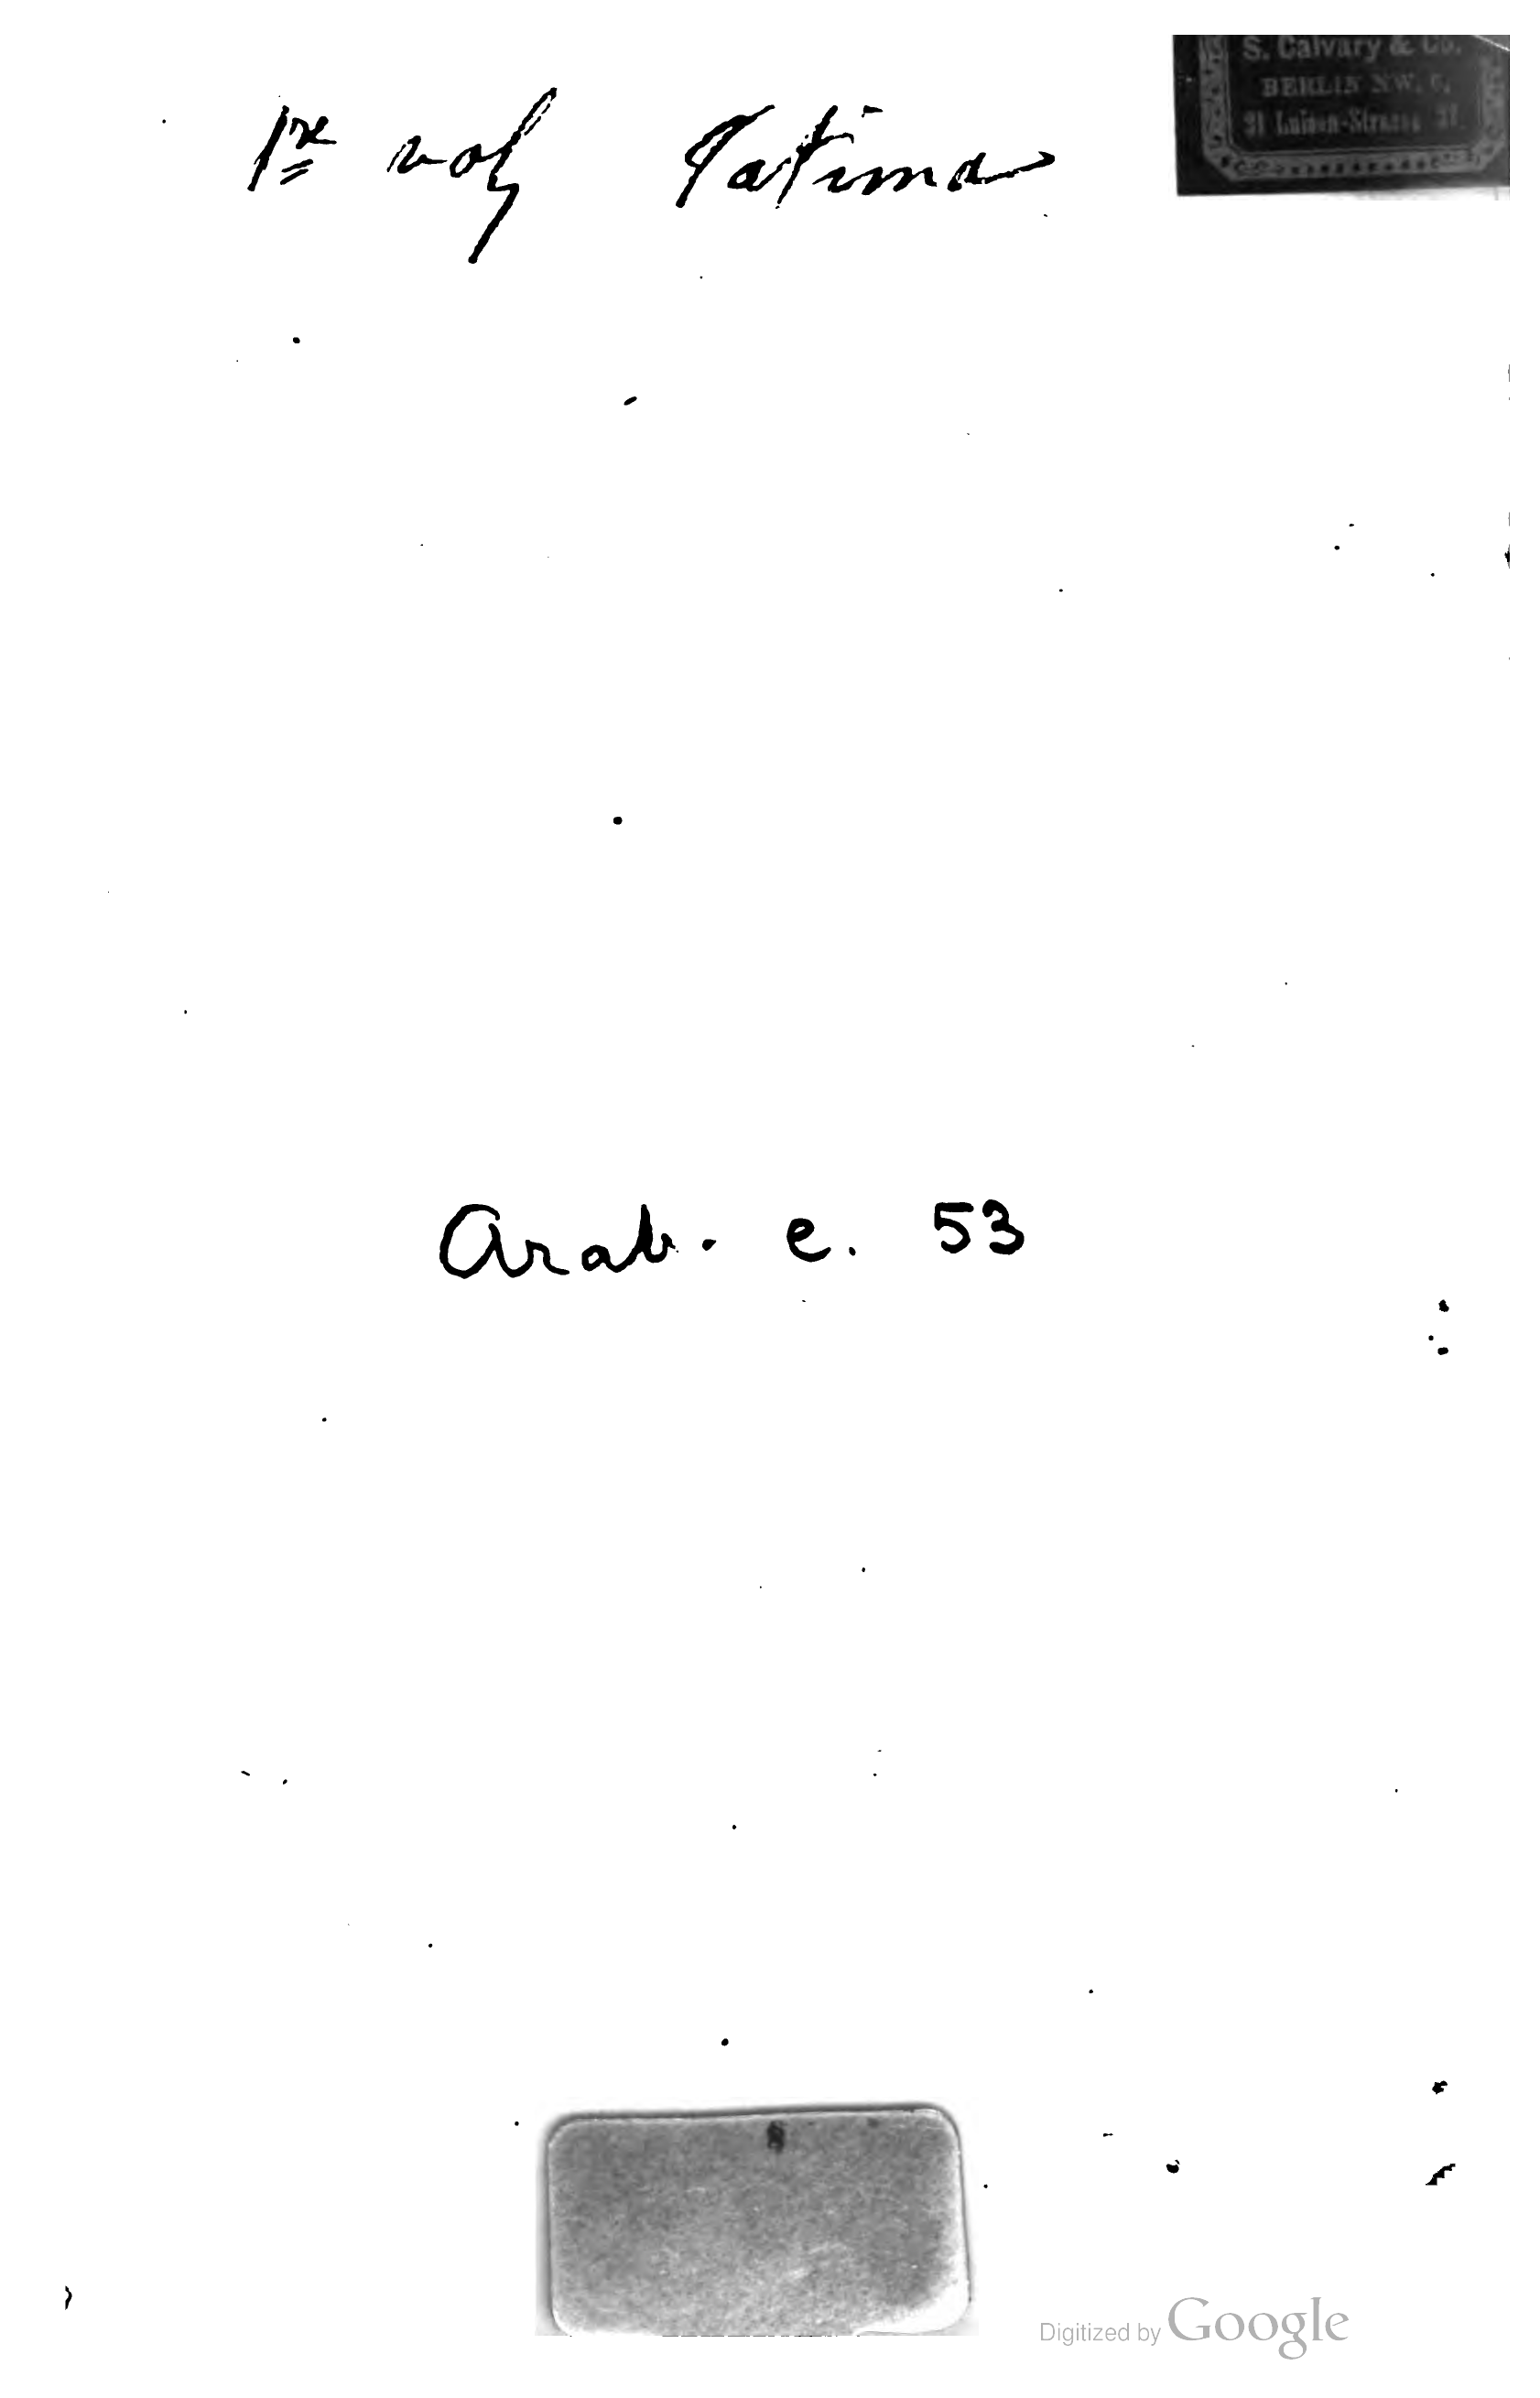 S. Calvary & Co.
BERLIN NW. 6,
31 Luisen-Strasse 31
1re vol Yatima
Arab. e. 53
Digitized by Google